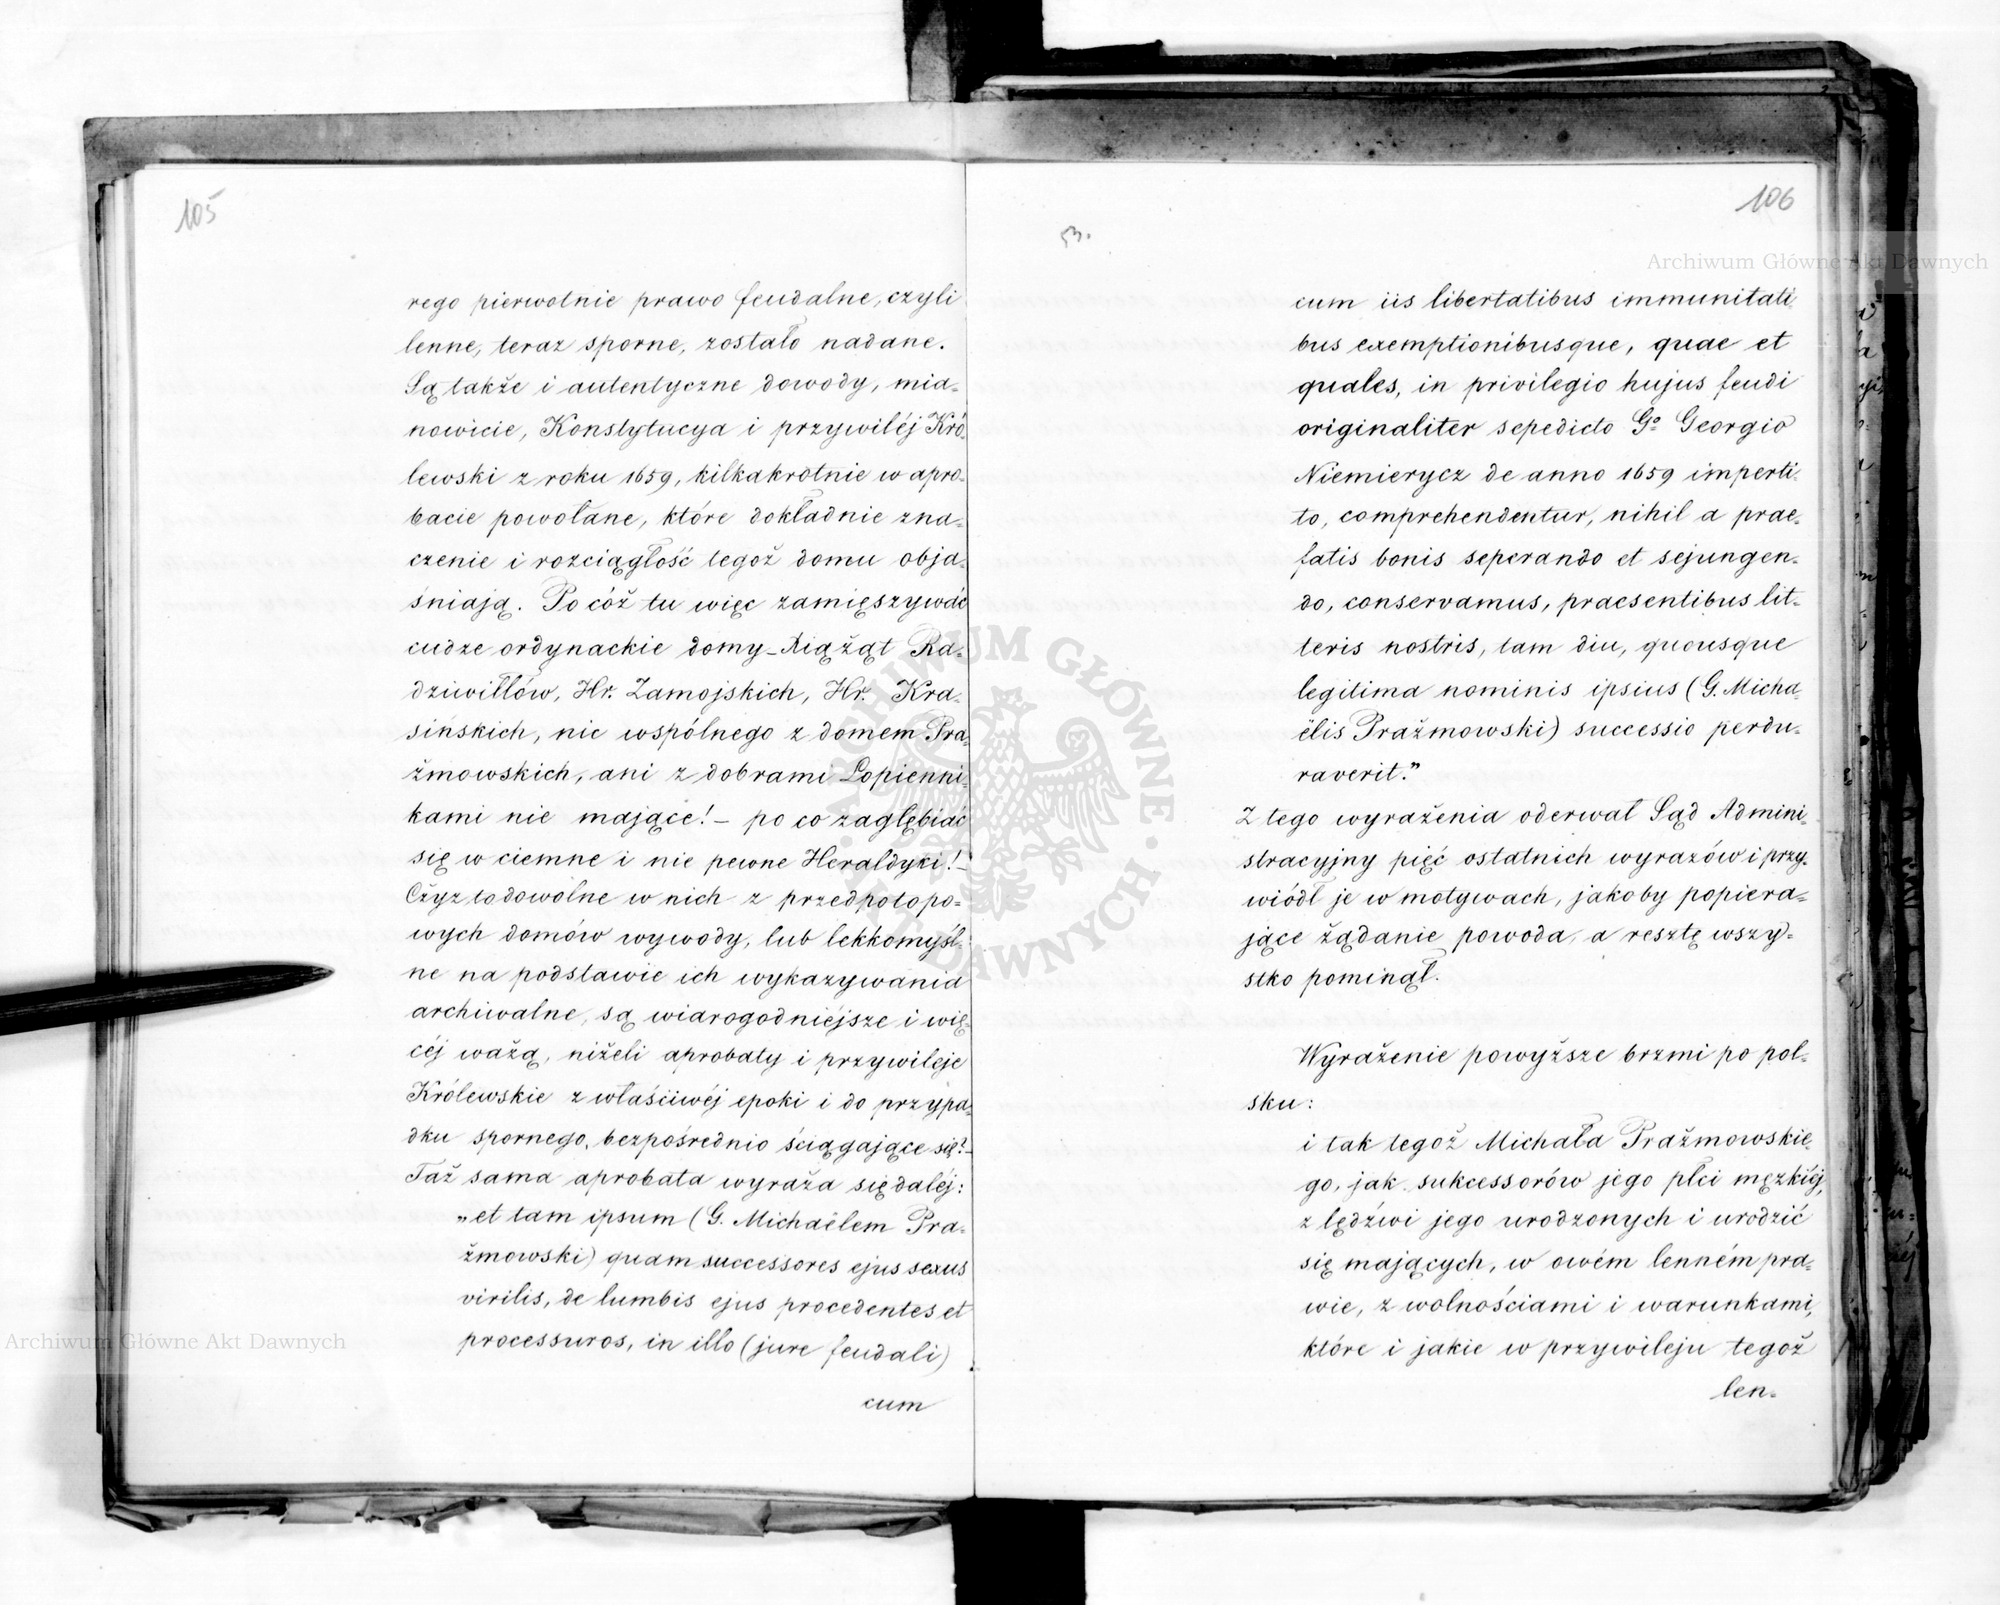 105
rego pierwotnie prawo feudalne, czyli
lenne, teraz sporne, zostało nadane.
Są także i autentyczne dowody, mia-
nowicie, Konstytucya i przywiléj Kró-
lewski z roku 1659, kilkakrotnie w apro-
bacie powołane, które dokładnie zna-
czenie i rozciągłość tegoż domu obja-
śniają. Po cóż tu więc zamięszywać
cudze ordynackie domy – Xiążąt Ra-
dziwiłłów, Hr. Zamojskich, Hr. Kra-
sińskich, nic wspólnego z domem Pra-
żmowskich, ani z dobrami Łopienni-
kami nie mające! – po co zagłębiać
się w ciemne i nie pewne Heraldyki! –
Czyż to dowolne w nich z przedpotopo-
wych domów wywody, lub lekkomyśl-
ne na podstawie ich wykazywania
archiwalne, są wiarogodniéjsze i wię-
céj ważą, niżeli aprobaty i przywileje
Królewskie z właściwéj epoki i do przypa-
dku spornego, bezpośrednio ściągające się? –
Taż sama aprobata wyraża się daléj:
„et tam ipsum (G. Michaëlem Pra-
żmowski) quam successores ejus sexus
virilis, de lumbis ejus procedentes et
processuros, in illo (jure feudali)
cum
106
53.
cum iis libertatibus immunitati
bus exemptionibusque, quae et
quales, in privilegio hujus feudi
originaliter sepedicto Go Georgio
Niemierycz de anno 1659 imperti-
to, comprehendentur, nihil a prae-
fatis bonis seperando et sejungen-
do, conservamus, praesentibus lit-
teris nostris, tam diu, quousque
legitima nominis ipsius (G. Micha-
ëlis Prażmowski) successio perdu-
raverit."
Z tego wyrażenia oderwał Sąd Admini-
stracyjny pięć ostatnich wyrazów i przy-
wiódł je w motywach, jakoby popiera-
jące żądanie powoda, a resztę wszy-
stko pominął.
Wyrażenie powyższe brzmi po pol-
sku:
i tak tegoż Michała Prażmowskie-
go, jak sukcessorów jego płci męzkiéj,
z lędźwi jego urodzonych i urodzić
się mających, w owém lenném pra-
wie, z wolnościami i warunkami,
które i jakie w przywileju tegoż
len-
Archiwum Główne Akt Dawnych
Archiwum Główne Akt Dawnych
ARCHIWUM GŁÓWNE AKT DAWNYCH